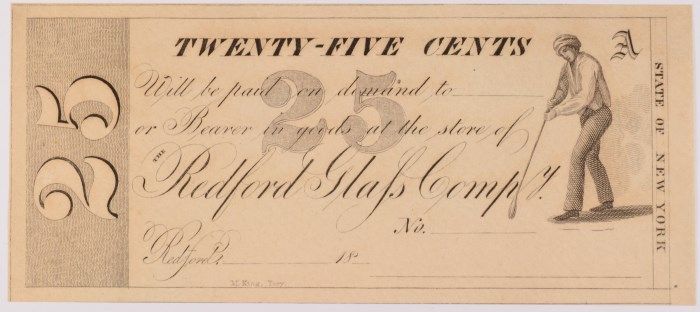 25
TWENTY-FIVE CENTS
A
25
Will be paid on demand to
or Bearer in goods at the store of
THE
Redford Glaſs Compy.
No.
Redford, 18
STATE OF NEW YORK
M. King, Troy.